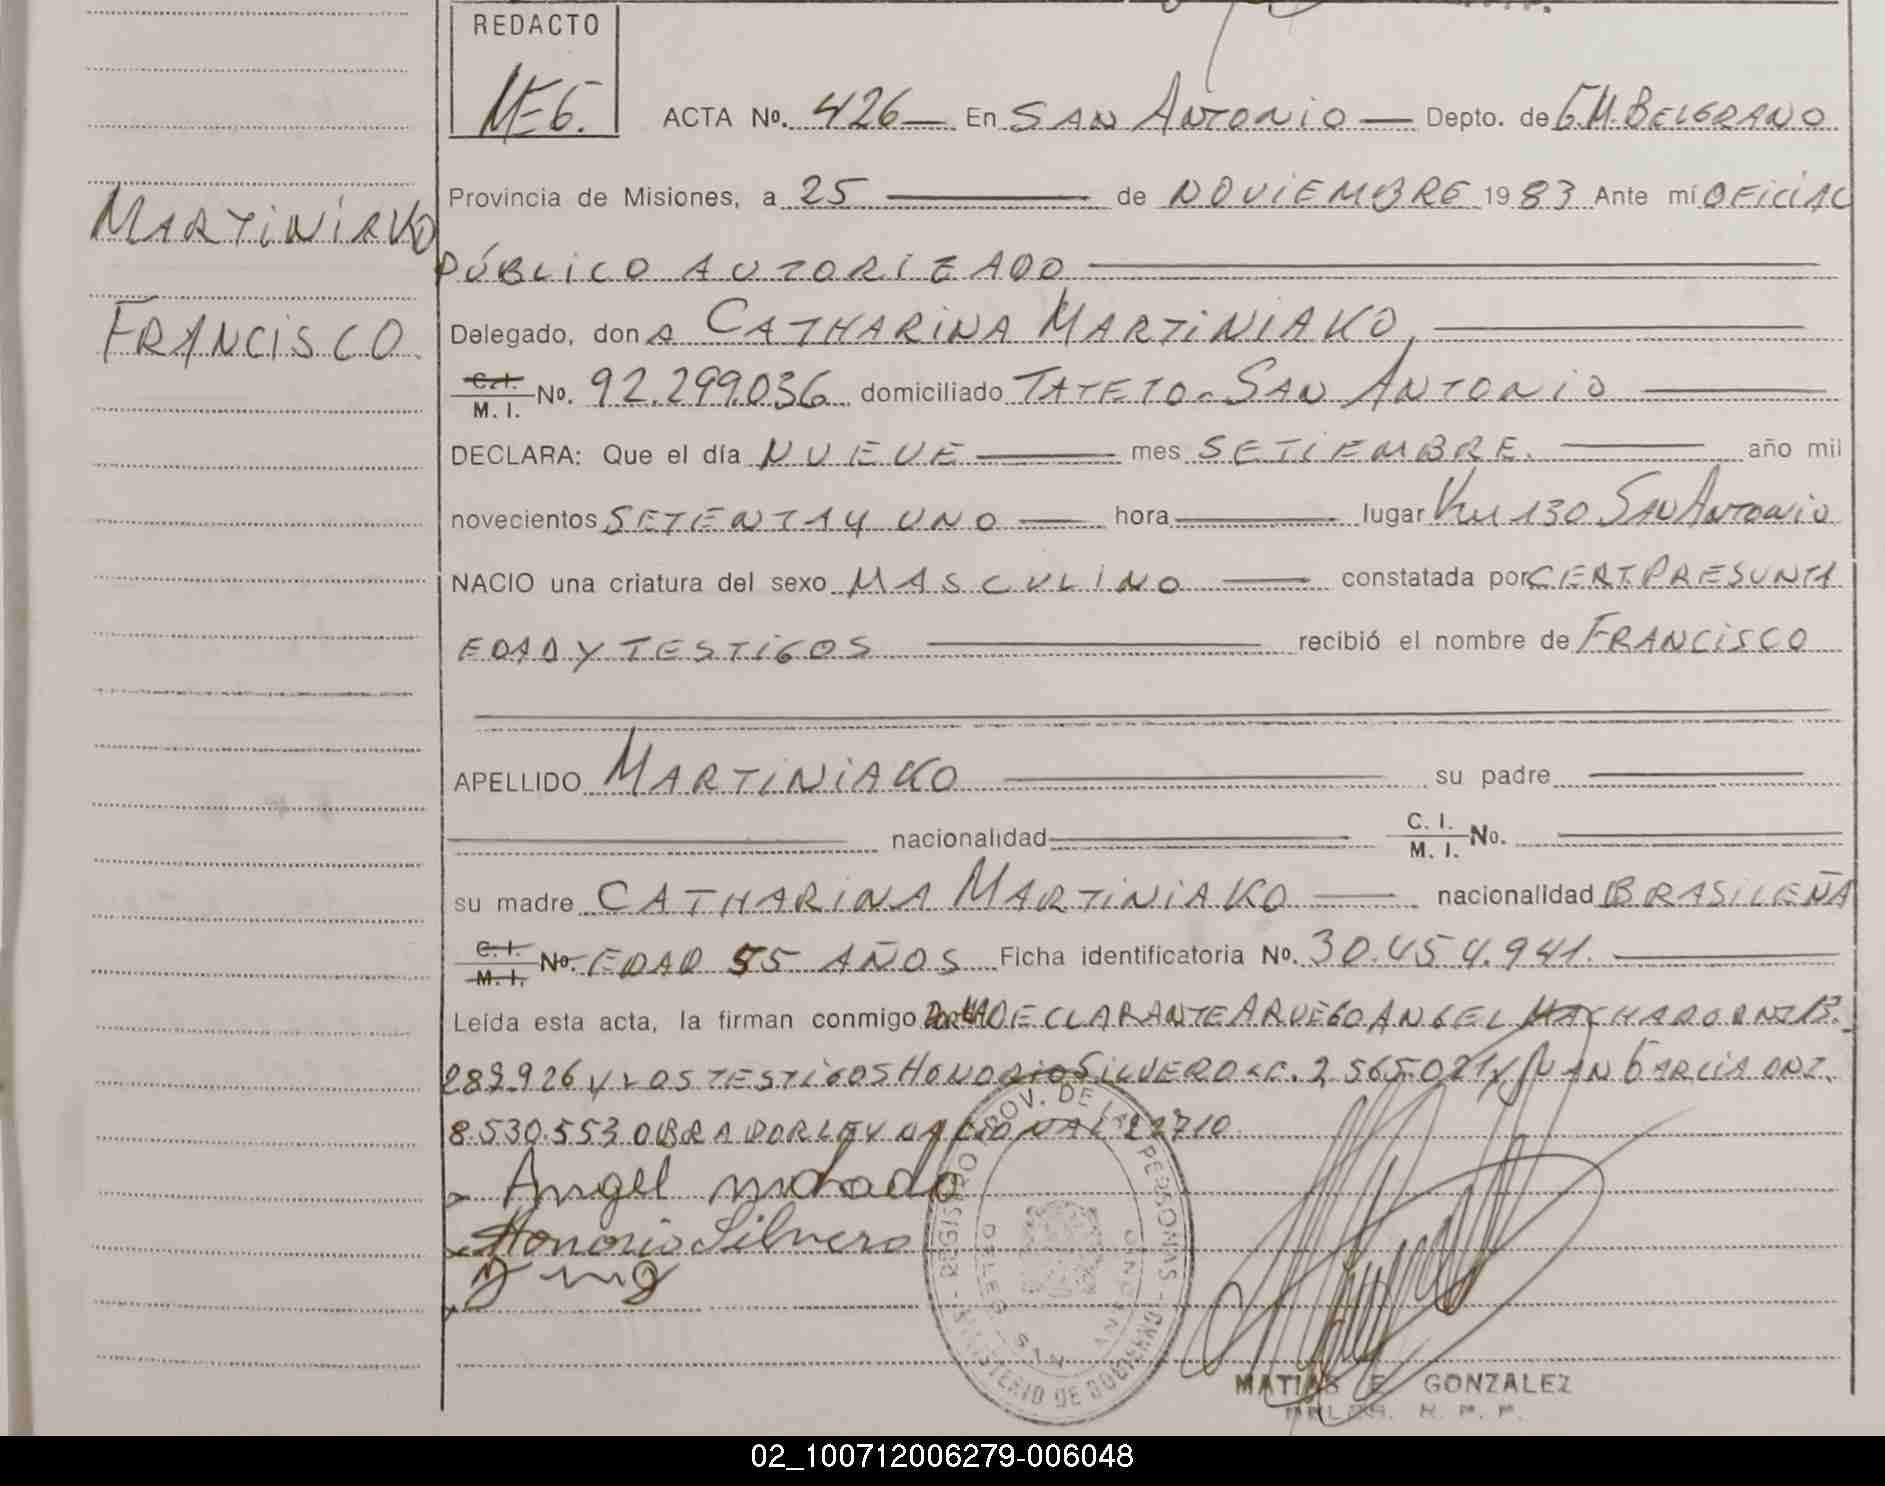 REDACTO
MEG.
ACTA No. 426 En SAN ANTONIO Depto. de G.M. BELGRANO
MARTINIAKO
Provincia de Misiones, a 25 de NOVIEMBRE 1983 Ante mí OFICIAL
PÚBLICO AUTORIZADO
FRANCISCO.
Delegado, don A CATHARINA MARTINIAKO,
C.I. M.I. No. 92.299.036 domiciliado TATETO-SAN ANTONIO
DECLARA: Que el día NUEVE mes SETIEMBRE. año mil
novecientos SETENTA Y UNO hora lugar Km 130 SAN ANTONIO
NACIO una criatura del sexo MASCULINO constatada por CERT. PRESUNTA
EDAD Y TESTIGOS recibió el nombre de FRANCISCO
APELLIDO MARTINIAKO su padre
nacionalidad C.I. M.I. No.
su madre CATHARINA MARTINIAKO nacionalidad BRASILEÑA
C.I. M.I. No. EDAD 55 AÑOS Ficha identificatoria No. 30.454.941.
Leída esta acta, la firman conmigo POR LA DECLARANTE A RUEGO ANGEL MACHADO DNI 13.
289.926 Y LOS TESTIGOS HONORIO SILVERO L.C. 2.565.021 Y JUAN GARCIA DNI.
8.530.553 OBRADOR LEY NACIONAL 22710
Angel machado
Honorio Silvero
REGISTRO PROV. DE LAS PERSONAS - MINISTERIO DE GOBIERNO -
DELEG. SAN ANTONIO
MATIAS E. GONZALEZ
DELEG. R. P. P.
02_100712006279-006048